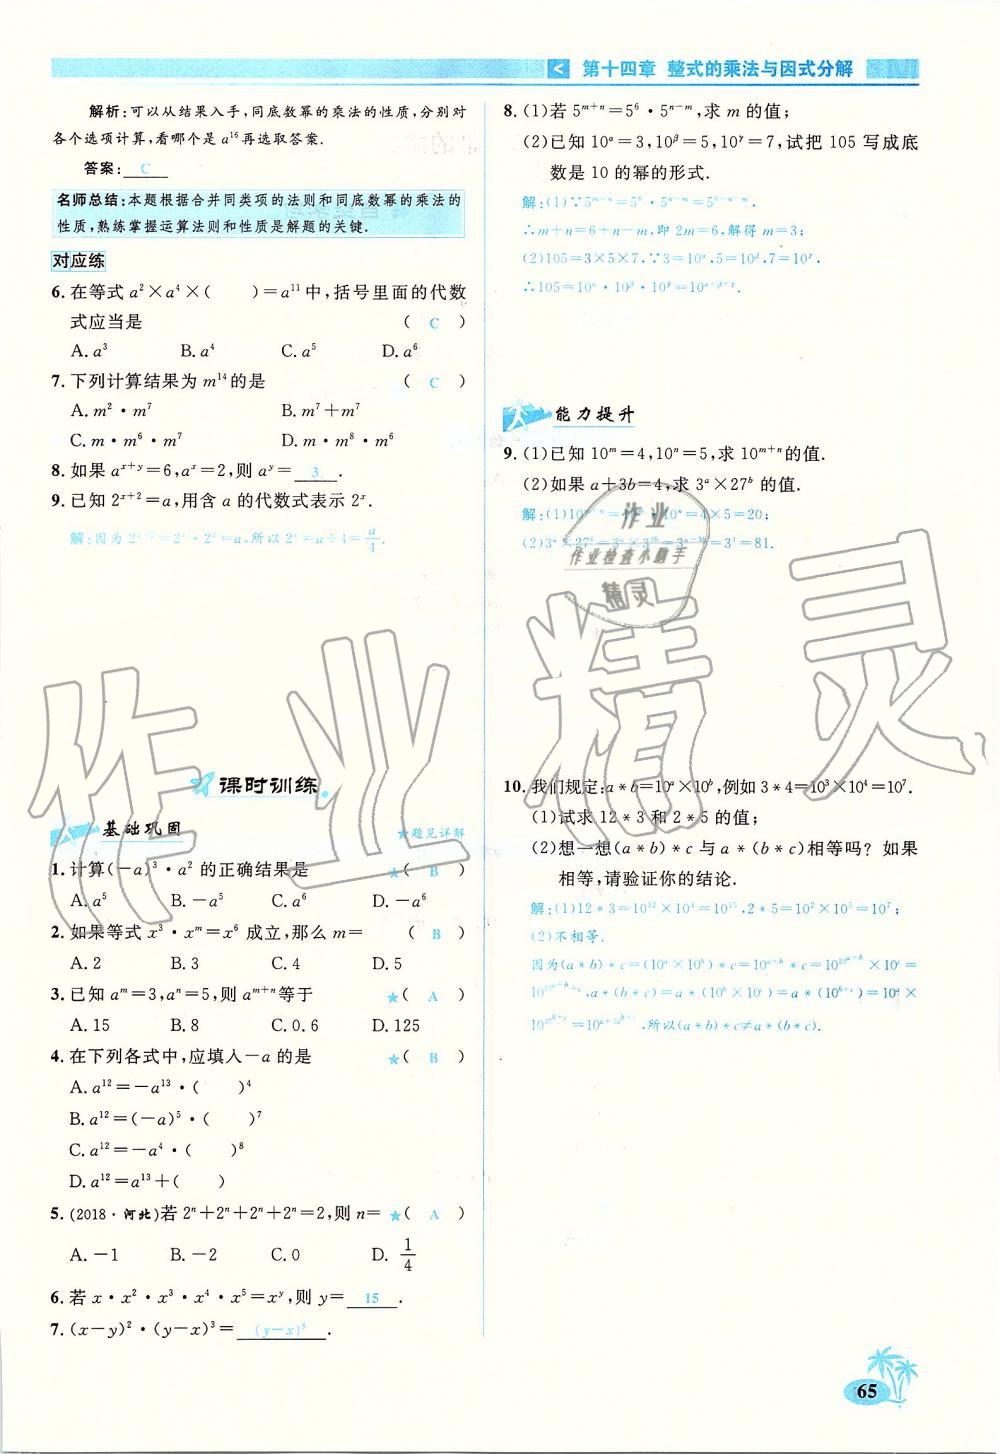 第十四章 整式的乘法与因式分解
解析:可以从结果入手,同底数幂的乘法的性质,分别对
各个选项计算,看哪个是 a¹⁶ 再选取答案.
答案: C
名师总结:本题根据合并同类项的法则和同底数幂的乘法的
性质,熟练掌握运算法则和性质是解题的关键.
对应练
6. 在等式 a²×a⁴×(  )=a¹¹中,括号里面的代数
式应当是 ( C )
A. a³ B. a⁴ C. a⁵ D. a⁶
7. 下列计算结果为 m¹⁴的是 ( C )
A. m²·m⁷ B. m⁷+m⁷
C. m·m⁶·m⁷ D. m·m⁸·m⁶
8. 如果 aˣ⁺ʸ=6,aˣ=2,则 aʸ= 3 .
9. 已知 2ˣ⁺²=a,用含 a 的代数式表示 2ˣ.
解:因为 2ˣ⁺²=2ˣ·2²=a,所以 2ˣ=a÷4=a/4.
课时训练
基础巩固 ★题见详解
1. 计算(−a)³·a² 的正确结果是 ★( B )
A. a⁵ B. −a⁵ C. a⁶ D. −a⁶
2. 如果等式 x³·xᵐ=x⁶ 成立,那么 m= ( B )
A. 2 B. 3 C. 4 D. 5
3. 已知 aᵐ=3,aⁿ=5,则 aᵐ⁺ⁿ等于 ★( A )
A. 15 B. 8 C. 0.6 D. 125
4. 在下列各式中,应填入−a 的是 ★( B )
A. a¹²=−a¹³·(  )⁴
B. a¹²=(−a)⁵·(  )⁷
C. a¹²=−a⁴·(  )⁸
D. a¹²=a¹³+(  )
5. (2018·河北)若 2ⁿ+2ⁿ+2ⁿ+2ⁿ=2,则 n= ★( A )
A. −1 B. −2 C. 0 D. 1/4
6. 若 x·x²·x³·x⁴·x⁵=xʸ,则 y= 15 .
7. (x−y)²·(y−x)³= (y−x)⁵
8. (1)若 5ᵐ⁺ⁿ=5⁶·5ⁿ⁻ᵐ,求 m 的值;
(2)已知 10^α=3,10^β=5,10^γ=7,试把 105 写成底
数是 10 的幂的形式.
解:(1)∵5ᵐ⁺ⁿ=5⁶·5ⁿ⁻ᵐ=5⁶⁺ⁿ⁻ᵐ,
∴m+n=6+n−m,即 2m=6,解得 m=3;
(2)105=3×5×7,∵3=10^α,5=10^β,7=10^γ,
∴105=10^α·10^β·10^γ=10^(α+β+γ).
能力提升
9. (1)已知 10ᵐ=4,10ⁿ=5,求 10ᵐ⁺ⁿ的值.
(2)如果 a+3b=4,求 3ᵃ×27ᵇ 的值.
解:(1)10ᵐ⁺ⁿ=10ᵐ·10ⁿ=4×5=20;
(2)3ᵃ×27ᵇ=3ᵃ×3³ᵇ=3ᵃ⁺³ᵇ=3⁴=81.
10. 我们规定:a*b=10ᵃ×10ᵇ,例如 3*4=10³×10⁴=10⁷.
(1)试求 12*3 和 2*5 的值;
(2)想一想(a*b)*c 与 a*(b*c)相等吗? 如果
相等,请验证你的结论.
解:(1)12*3=10¹²×10³=10¹⁵,2*5=10²×10⁵=10⁷;
(2)不相等.
因为(a*b)*c=(10ᵃ×10ᵇ)*c=10ᵃ⁺ᵇ*c=10^(10^(a+b))×
10ᶜ=10^(10^(a+b)+c),a*(b*c)=a*(10ᵇ×10ᶜ)=a*(10ᵇ⁺ᶜ)=10ᵃ×
10^(10^(b+c))=10^(a+10^(b+c)),所以(a*b)*c≠a*(b*c).
作业
作业检查小助手
精灵
作业精灵
65